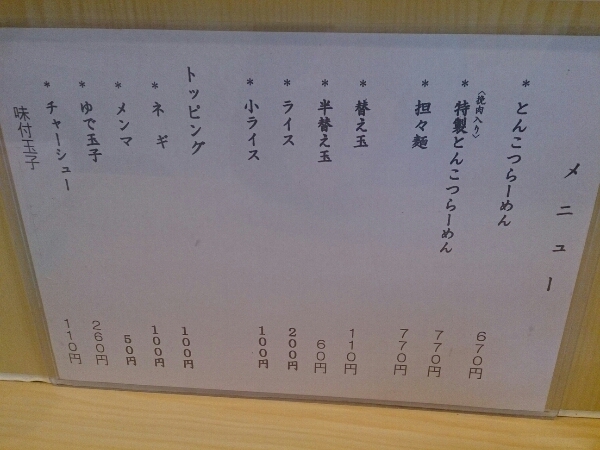 メニュー
* とんこつらーめん 670円
〈挽肉入り〉
* 特製とんこつらーめん 770円
* 担々麺 770円
* 替え玉 110円
* 半替え玉 60円
* ライス 200円
* 小ライス 100円
トッピング
* ネギ 100円
* メンマ 100円
* ゆで玉子 50円
* チャーシュー 260円
味付玉子 110円